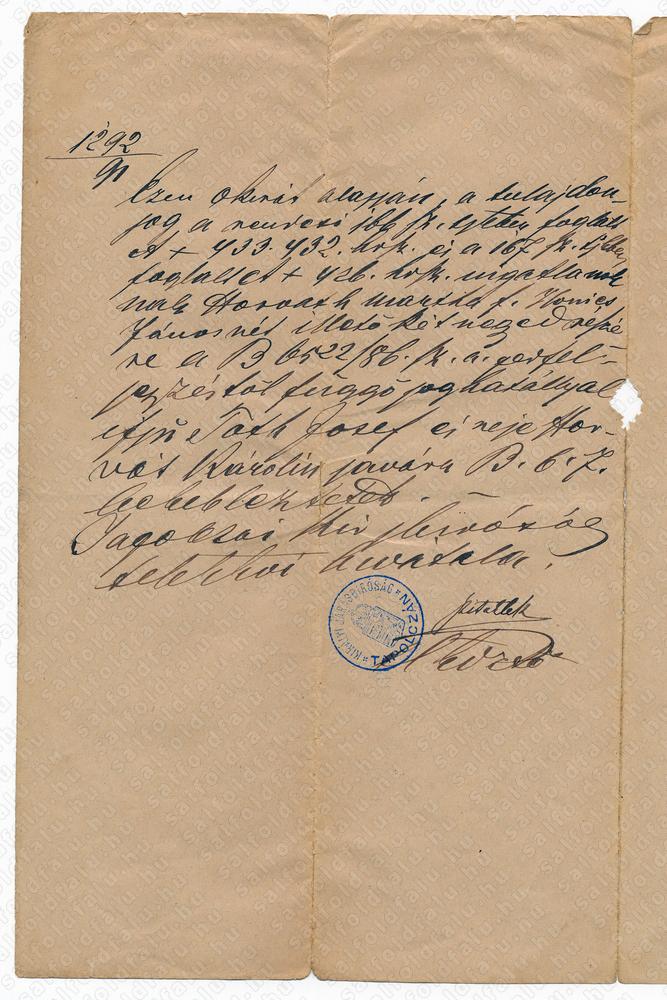 1292
91
Ezen okirat alapján, a tulajdon-
jog a rendesi 166 sz. tjkben foglalt
A + 433. 432. hrsz. és a 167 sz. tjkben
foglalt A + 426. hrsz. ingatlanok
nak Horváth Mártha f. János
Jánosnét illető két neged részé
re a B 6522/86. sz. a. 
jegyzéstől függő joghatállyal
ifjú Tóth Josef és neje Hor-
vát Károlin javára B. 6. 7.
bekebleztetett.
Tapolczai kir. járásbíróság
telekkvi hivatala.
KIRÁLYI JÁRÁSBÍRÓSÁG TAPOLCZÁN
salfoldfalu.hu